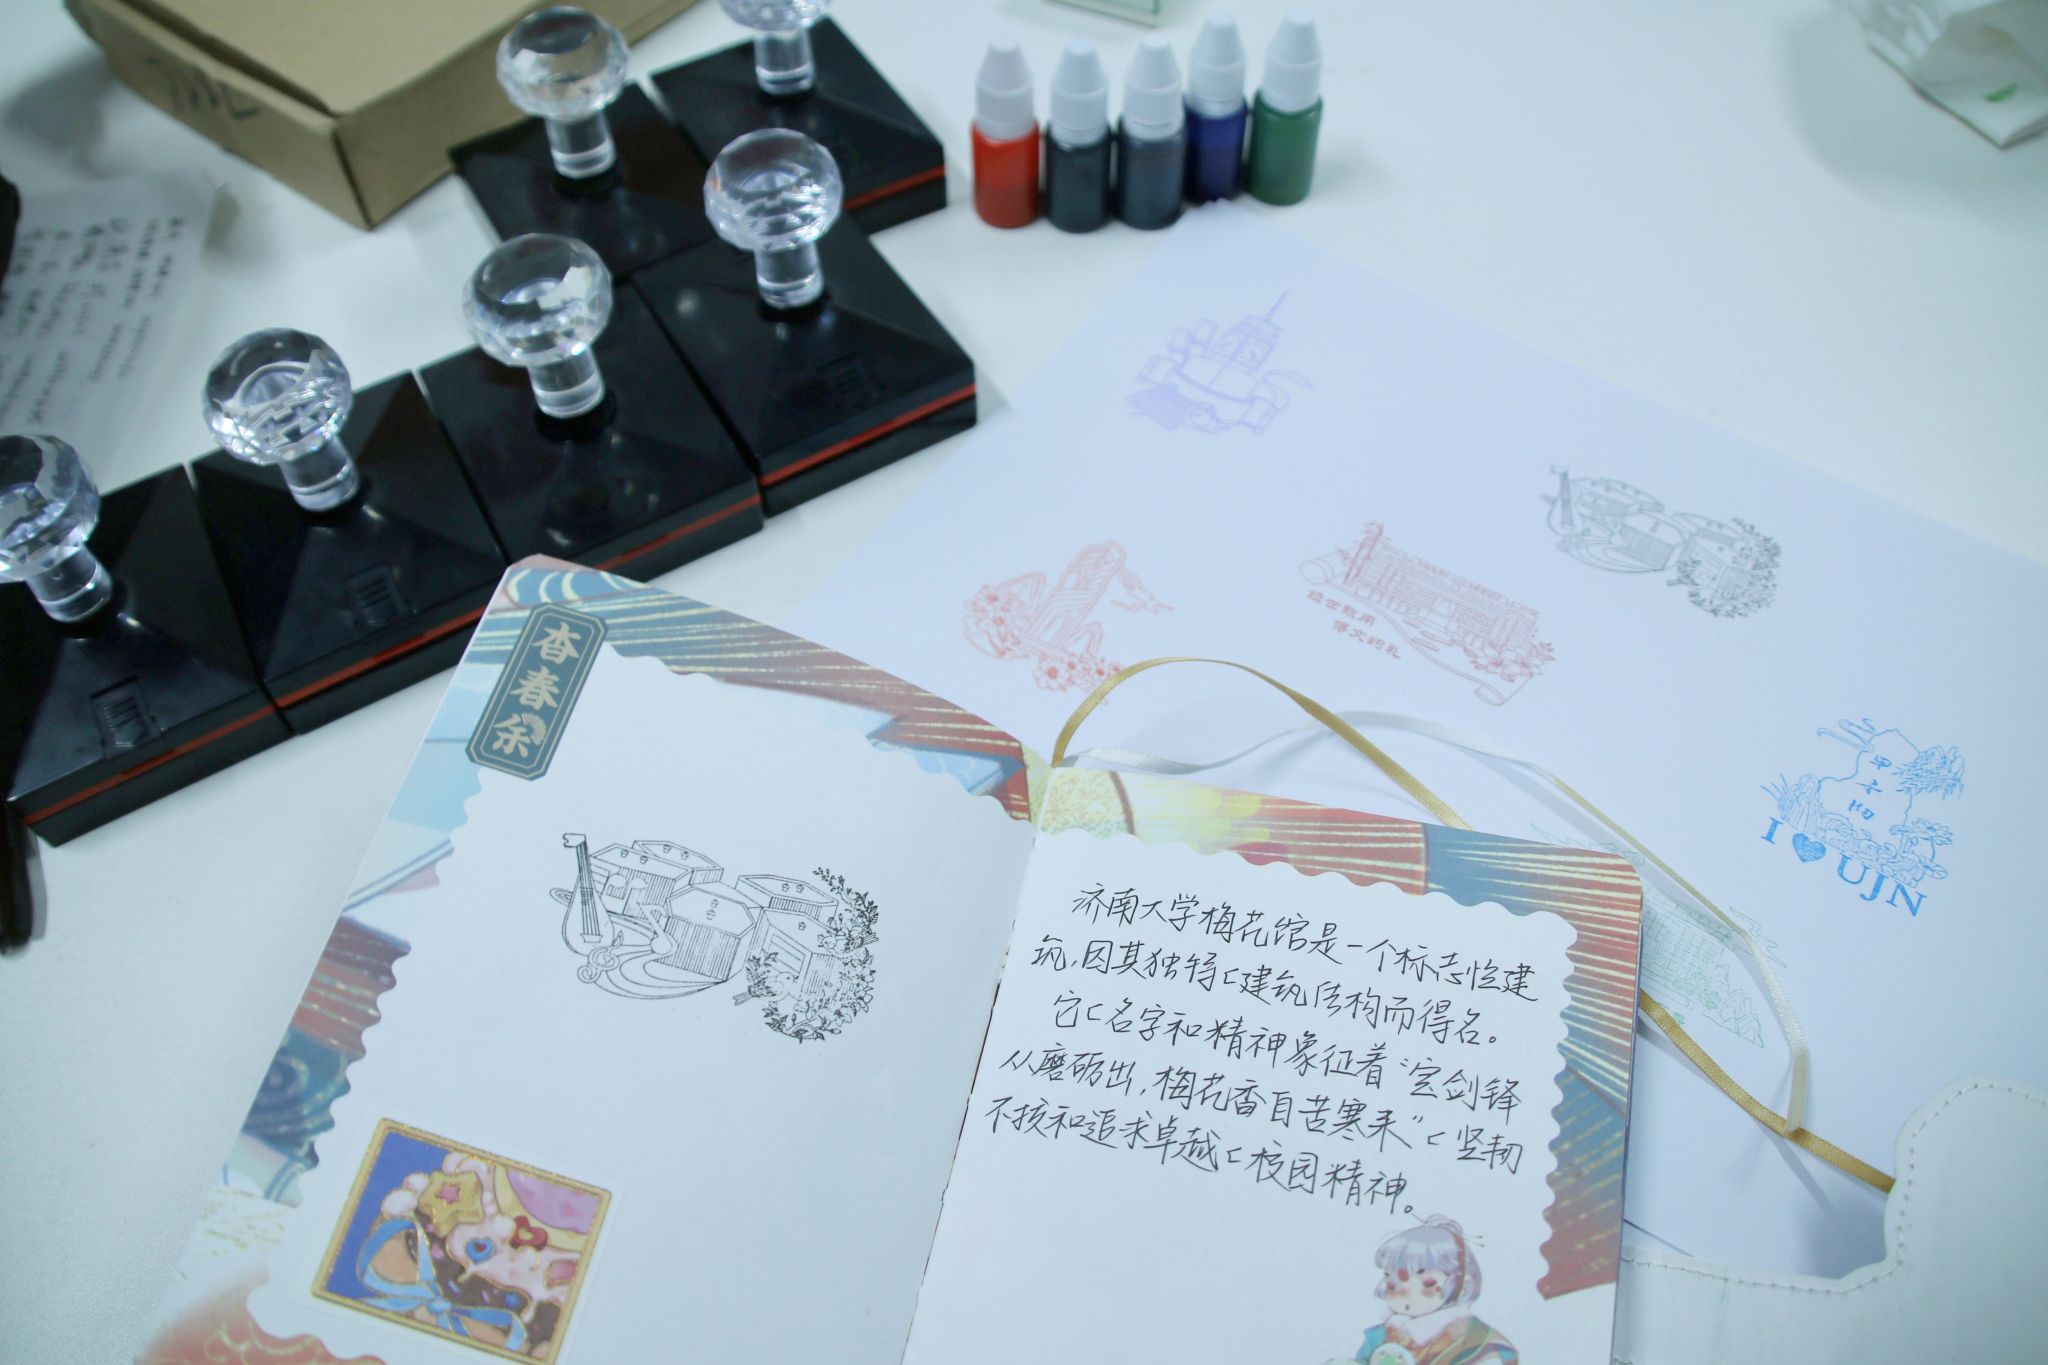 杏春余
济南大学梅花馆是一个标志性建
筑,因其独特的建筑结构而得名。
它的名字和精神象征着“宝剑锋
从磨砺出,梅花香自苦寒来”的坚韧
不拔和追求卓越的校园精神。
经世致用
博文约礼
I ♥ UJN